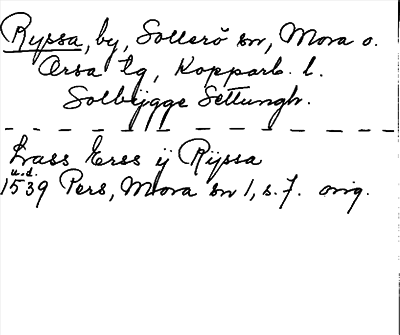 Ryssa, by, Sollerö sn, Mora o.
Orsa tg, Kopparb. l.
Solbÿgge Settungh.
Lass Erss ÿ Rÿssa
u.d.
1539 Pers, Mora sn 1, s. 7. orig.